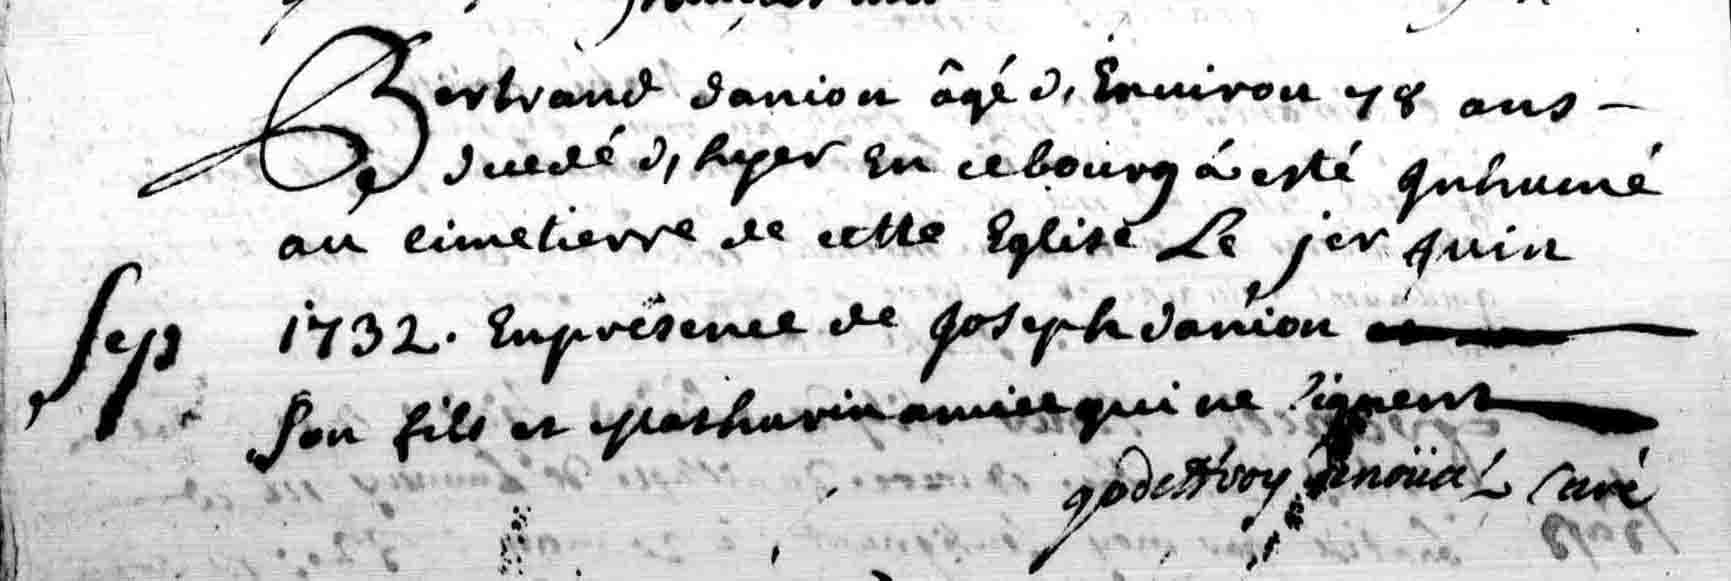 Bertrand danion âgé d, Environ 78 ans –
decedé d, hyer En ce bourg á esté Jnhumé
au cimetierre de cette Eglise Le jer Juin
Sep 1732. En présence de Joseph danion
Son fils et Mathurin amice qui ne signent
godeffroy curé